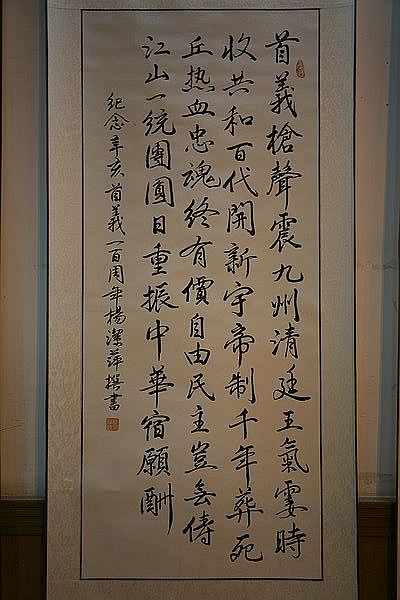 首義槍聲震九州清廷王氣霎時
收共和百代開新宇帝制千年葬死
丘热血忠魂終有價自由民主豈無儔
江山一統團圓日重振中華宿願酬
紀念辛亥首義一百周年楊潔萍撰書